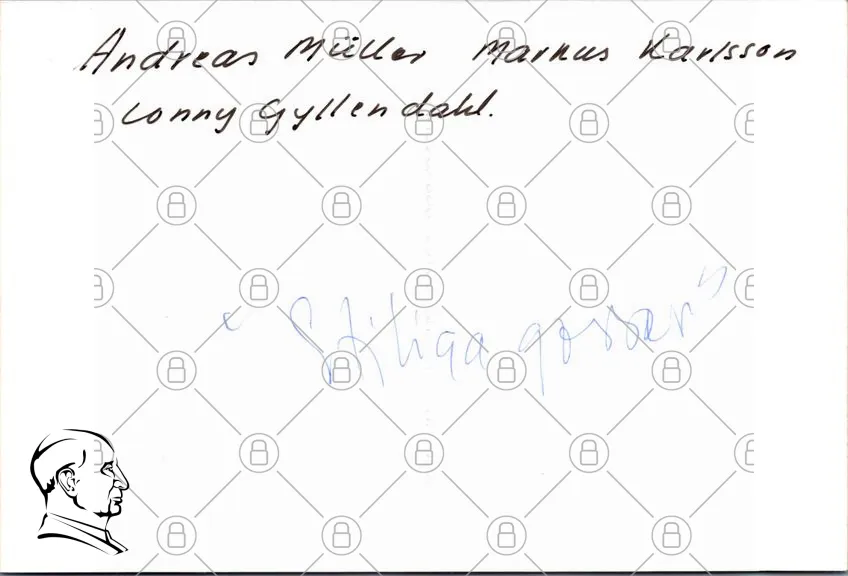 Andreas Müller Markus Karlsson
Conny Gyllendahl.
"Stiliga gossar"